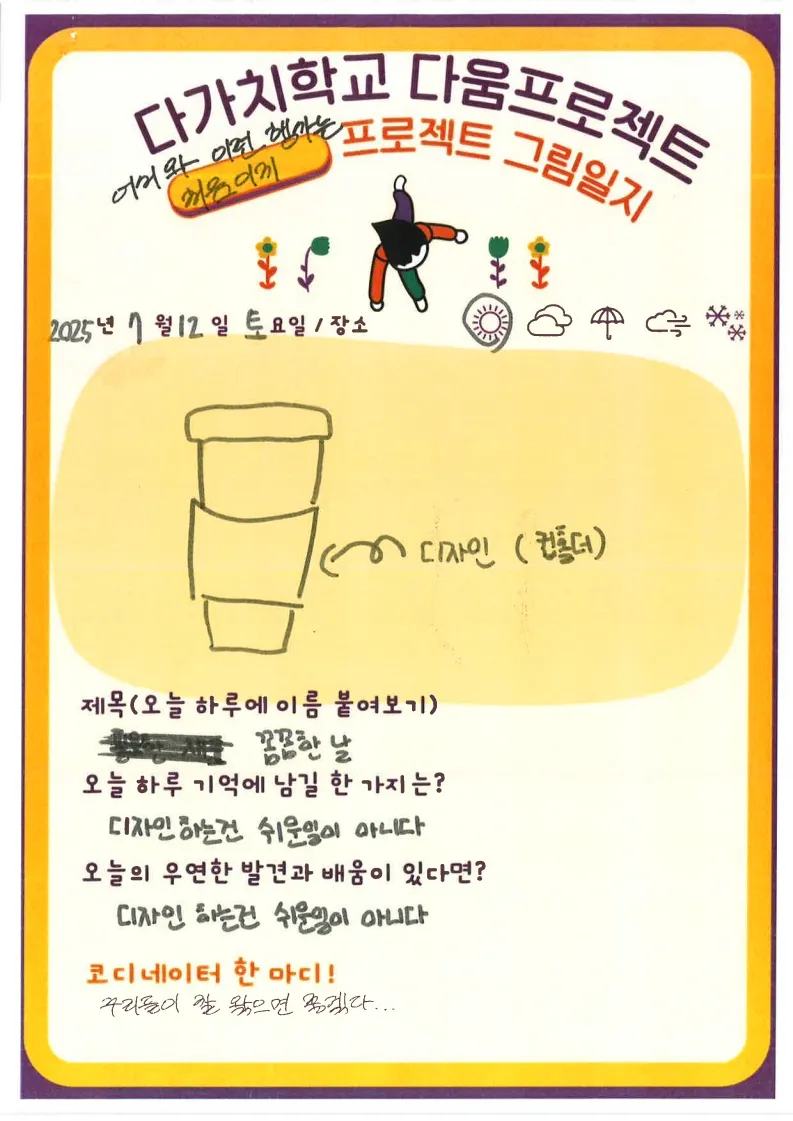 다가치학교 다움프로젝트
어머 와 이런 행사는
처음이지
프로젝트 그림일지
2025년 7월 12일 토요일 / 장소
디자인 (컵홀더)
제목(오늘 하루에 이름 붙여보기)
꼼꼼한 날
오늘 하루 기억에 남길 한 가지는?
디자인하는건 쉬운일이 아니다
오늘의 우연한 발견과 배움이 있다면?
디자인 하는건 쉬운일이 아니다
코디네이터 한 마디!